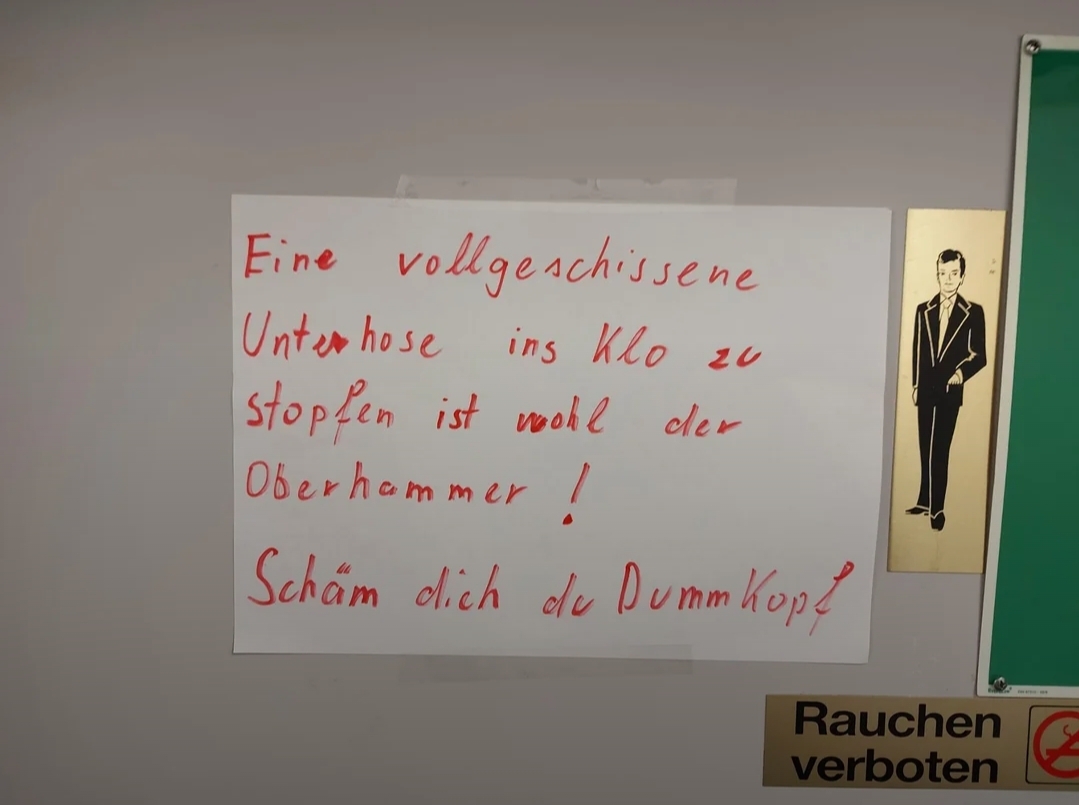 Eine vollgeschissene
Unterhose ins Klo zu
stopfen ist wohl der
Oberhammer !
Schäm dich du DummKopf
Rauchen
verboten